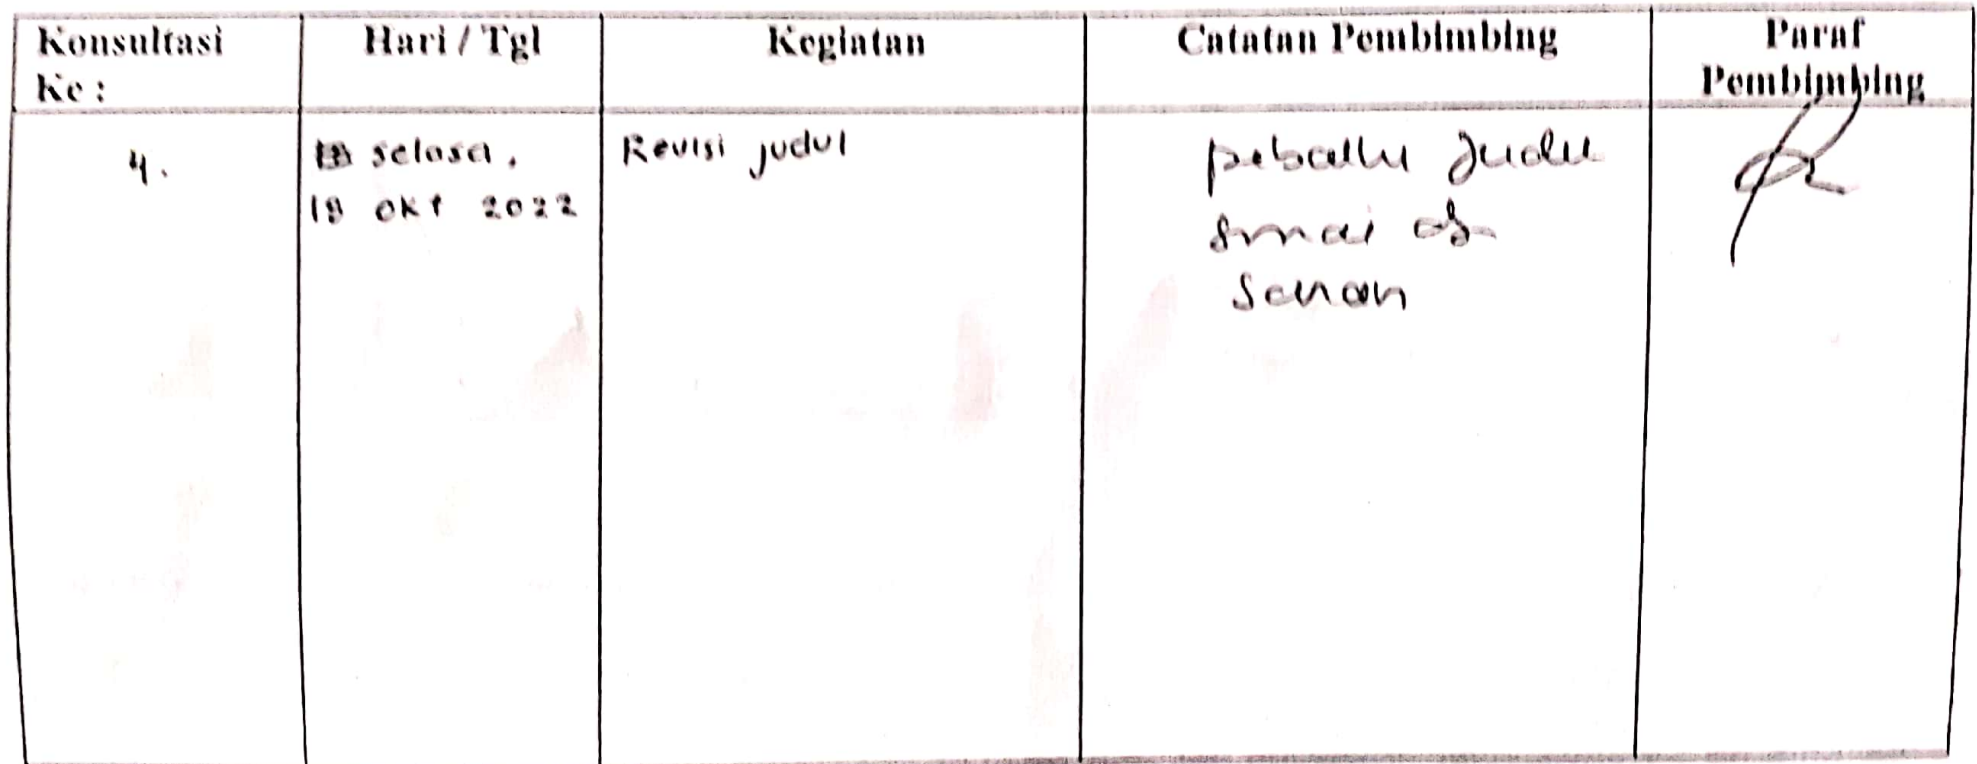 Konsultasi
Ke :
Hari / Tgl
Kegiatan
Catatan Pembimbing
Paraf
Pembimbing
4.
selasa,
18 okt 2022
Revisi judul
judul
saran